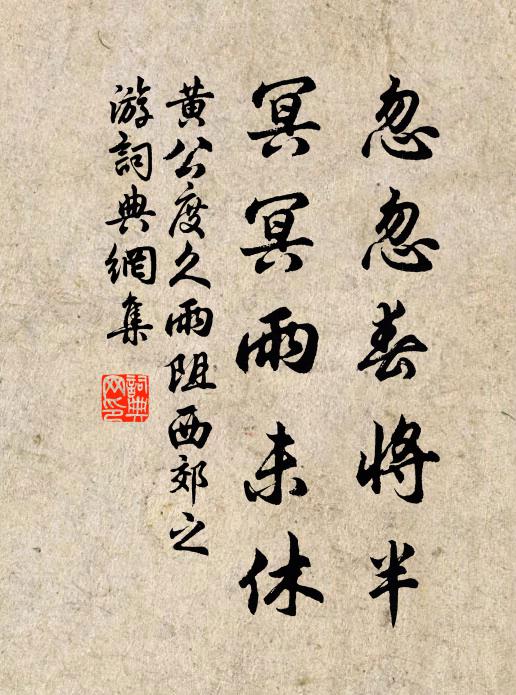 忽忽春將半
冥冥雨未休
黄公度久雨阻西郊之
游詞典網集
詞典网印